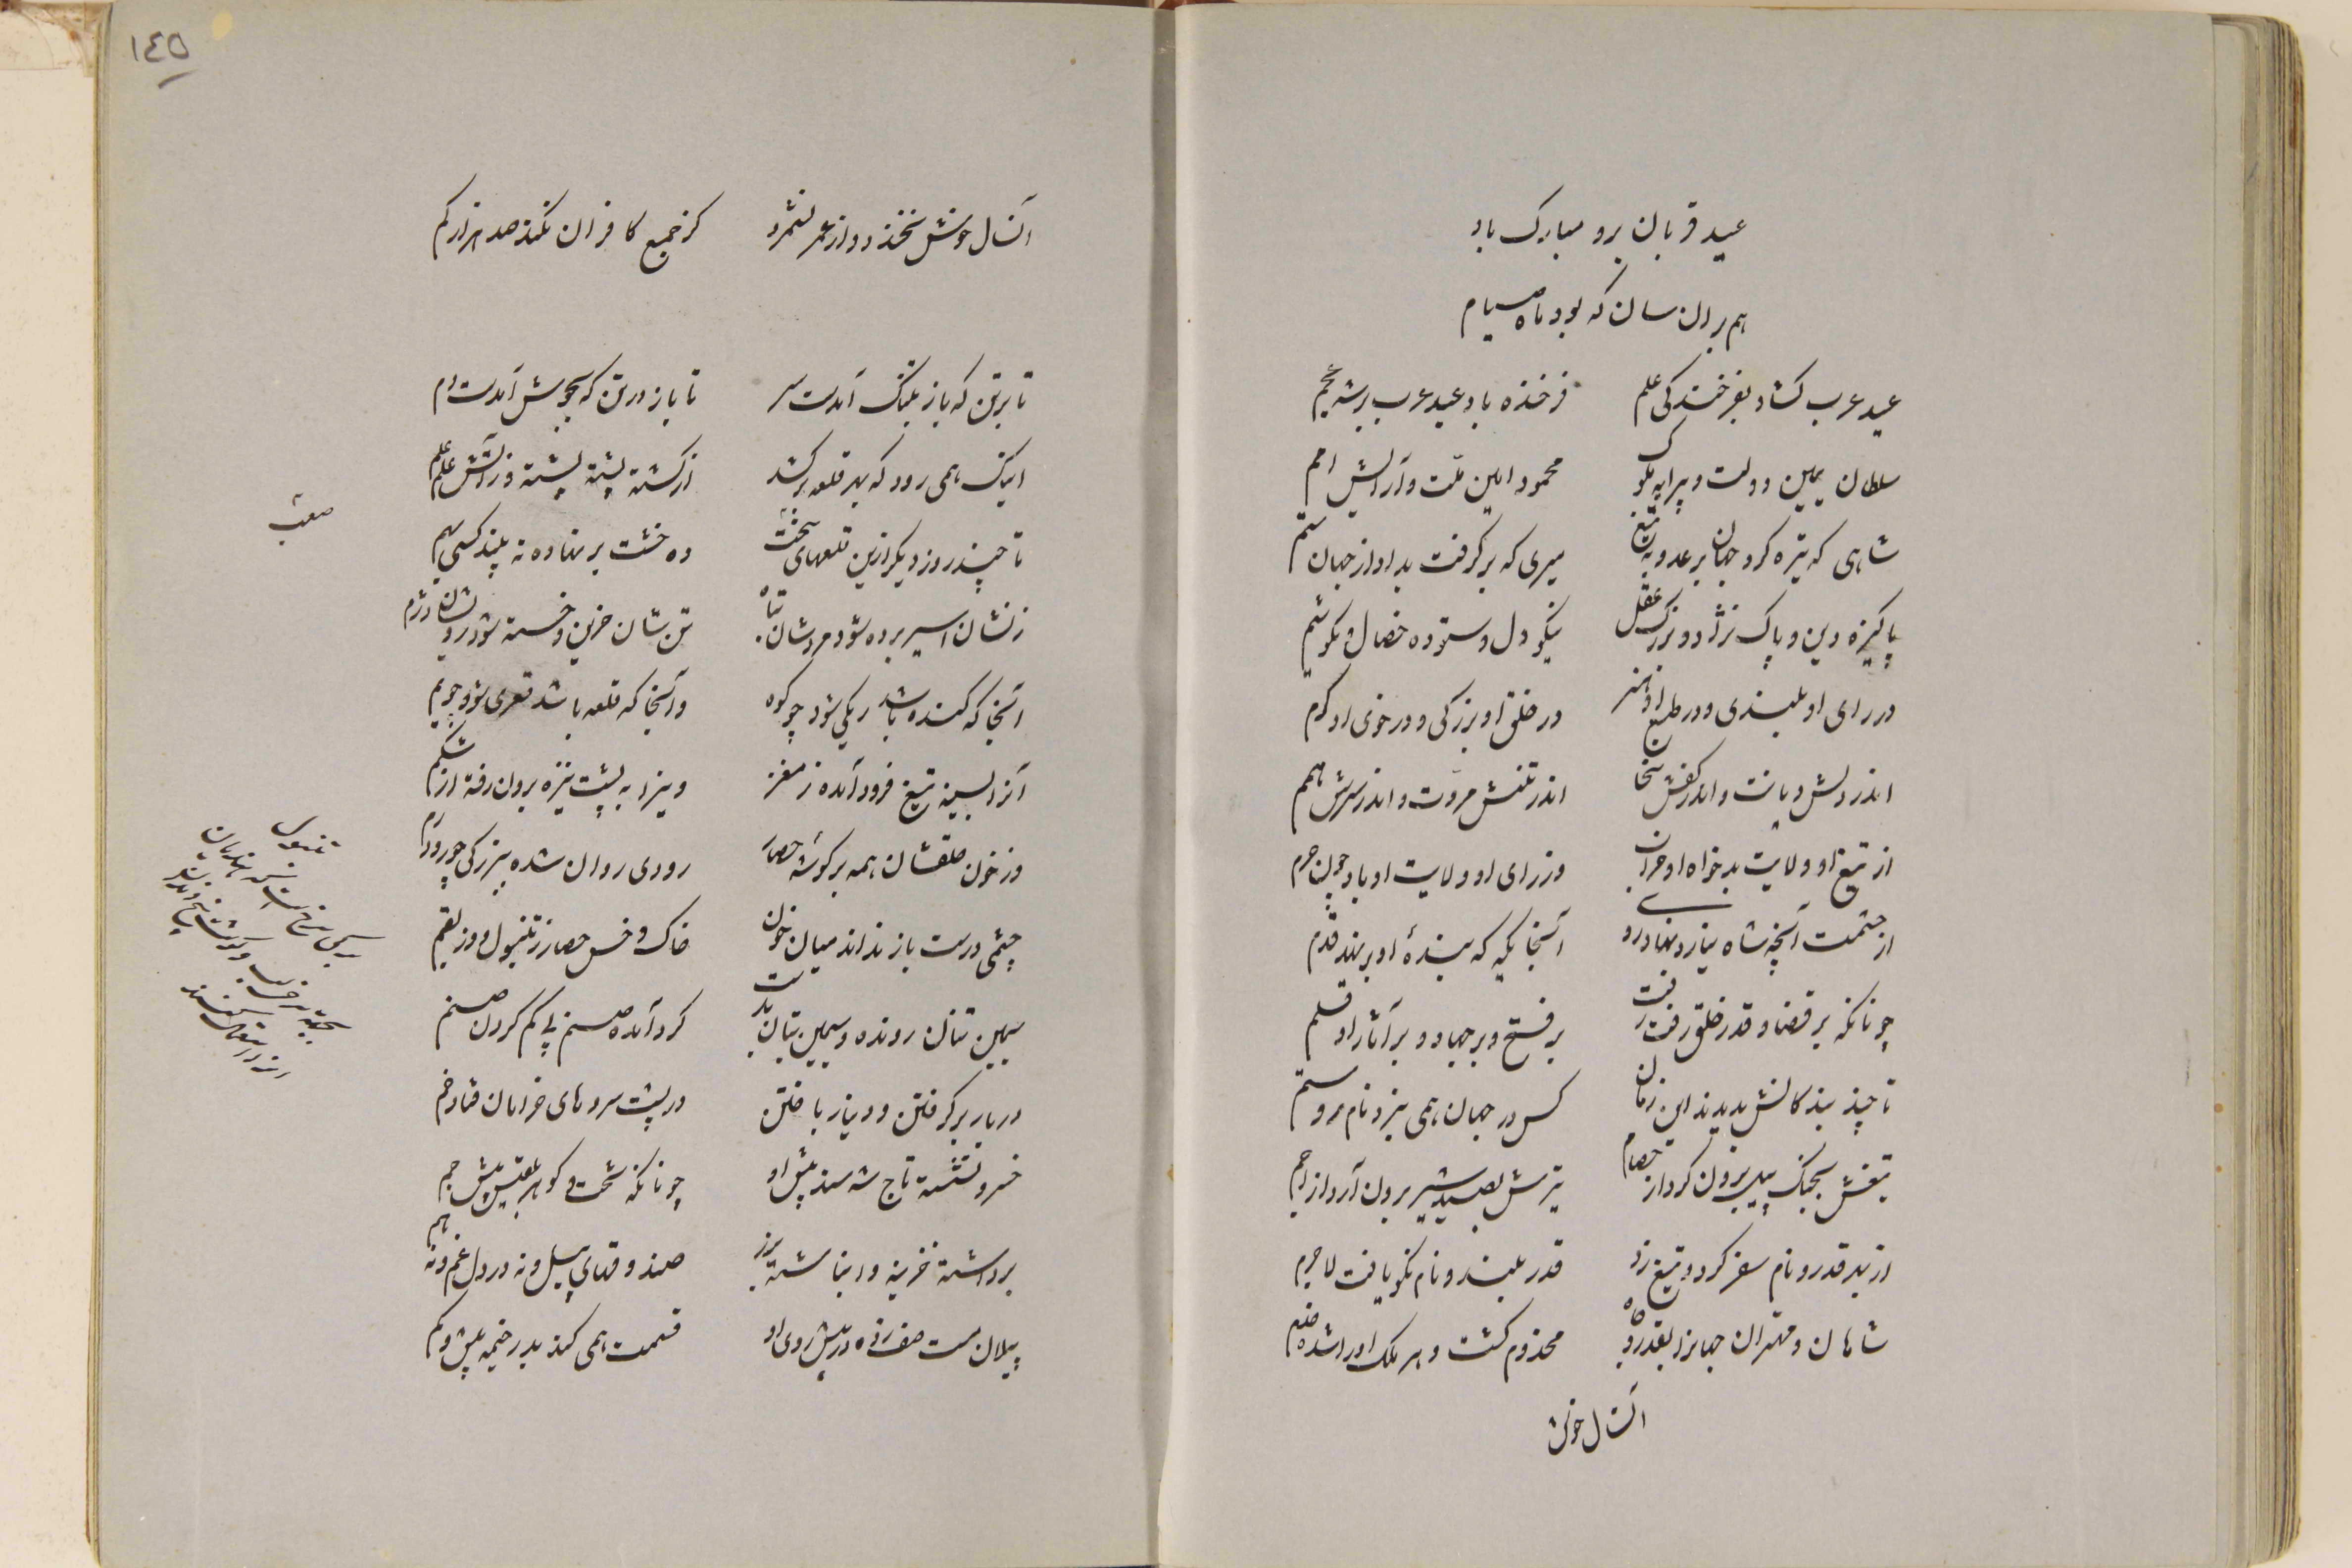 عید قربان برو مبارک باد
هم بران سان که بود ماه صیام
عید عرب گشاد بفرخندگی علم فرخنده باد عید عرب بر شه عجم
سلطان یمین دولت و پیرایه ملوک محمود امین ملت و آرایش امم
شاهی که تیره کرد جهان بر عدو به تیغ میری که برگرفت بداد از جهان ستم
پاکیزه دین و پاک نژاد و بزرگ عقل نیکو دل و ستوده خصال و نکوشیم
در رای او بلندی و در طبع او هنر در خلق او بزرگی و در خوی او کرم
اندر دلش دیانت و اندر کفش سخا اندر تنش مروت و اندر سرش همم
از تیغ او ولایت بدخواه او خراب وز رای او ولایت او باد چون حرم
از حشمت آنچه شاه نیارد نهاد رو آنجا یکیه که بندهٔ او برنهد قدم
چونانکه بر قضا و قدر خلق رفت رفت بر فتح و بر جهاد و بر آثار او قلم
تا چند بندگانش بدیدند این زمان کس در جهان همی نبرد نام روستم
تیغش بجنگ پیل برون کرد از خصام تیرش بصید شیر برون آرد از اجم
از بهر قدر و نام سفر کرد و تیغ زد قدر بلند و نام نکو یافت لاجرم
شاهان و مهتران جهانرا بقدر و جاه مخدوم گشت و هر ملک اورا شده خدم
انسال خوش
١٤٥
انسال خوش نخندد و از عمر نشمرد کز جمع کافران نکند صد هزار کم
تا برتن که باز بتنگ آمدست سر تا باز در تن که بجوش آمدست دم
اینک همی رود که بهر قلعه برکشد از کشته پشته پشته و زآتش علم علم
تا چند روز دیگر ازین قلعهای سخت ده خشت بر نهاده نه بیند کسی بهم
زنشان اسیر برده شود مردشان تباه تن شان حزین و خسته شود روی شان دژم
آنجا که کنده باشد ریکی شود چو کوه وآنجا که قلعه باشد قعری شود چو یم
آنرا بسینه تیغ فرود آمده ز مغز وینرا به پشت نیزه برون رفته از شکم
وز خون حلقشان همه بر گوشهٔ حصار رودی روان شده ببزرگی چو رود زم
چشمی درست باز نداند میان خون خاک و خس حصار ز تنبول و وز بقم
سیمین تنان رونده و سیمین بتان بدست گرد آمده صنم بی کم کردن صنم
در بار برگرفتن و دینار باختن در پشت سروهای خرامان فتاد خم
خسرو نشسته تاج شه هند پیش او چونانکه تخت گوهر بلقیس پیش جم
برداشته خزینه و انباشته بزر صندوقهای پیل و نه در دل غم و نه هم
پیلان مست صف زده در پیش روی او قسمت همی کند بدر خیمه بیش و کم
تنبول